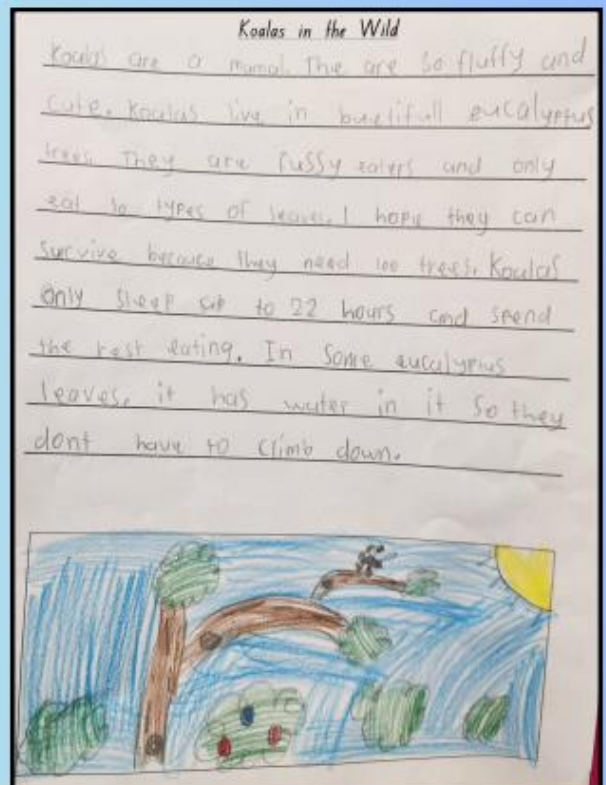 Koalas in the Wild
Koalas are a mamal. The are so fluffy and
cute. Koalas live in
eucalyptus
trees. They are fussy eaters and only
eat 10 types of leaves. I hope they can
survive because they need 100 trees. Koalas
only sleep up to 22 hours and spend
the rest eating. In some eucalyptus
leaves, it has water in it so they
dont have to climb down.